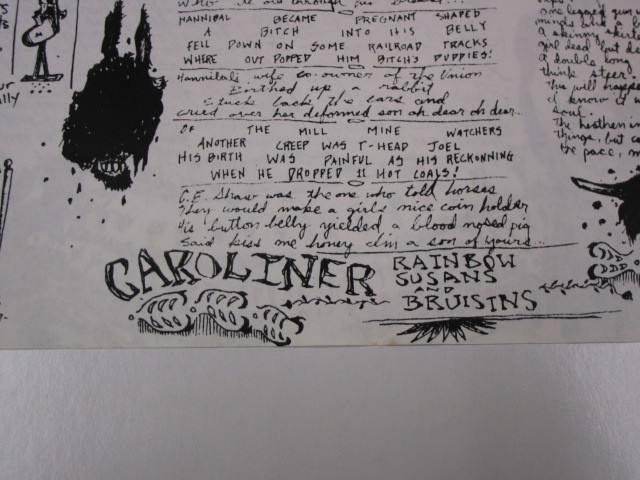 HANNIBAL BECAME PREGNANT SHAPED
A BITCH INTO HIS BELLY
FELL DOWN ON SOME RAILROAD TRACKS
WHERE OUT POPPED HIM BITCH'S PUPPIES!
Hannibals wife co-owner of the Union
Birthed up a rabbit
Stuck back the ears and
cried over her deformed son oh dear oh dear...
OF THE MILL MINE WATCHERS
ANOTHER CREEP WAS T-HEAD JOEL
HIS BIRTH WAS PAINFUL AS HIS RECKONNING
WHEN HE DROPPED 11 HOT COALS!
C.E. Shaw was the one who told horses
They would make a girls nice coin holder
His button belly yielded a blood nosed pig
Said kiss me honey I'm a son of yours...
CAROLINER
RAINBOW
SUSANS
AND
BRUISINS
a skinny
girl dead but
a double long
think steer
This will happe
I know
soul.
The heathen in
things, but ca
the pace, m